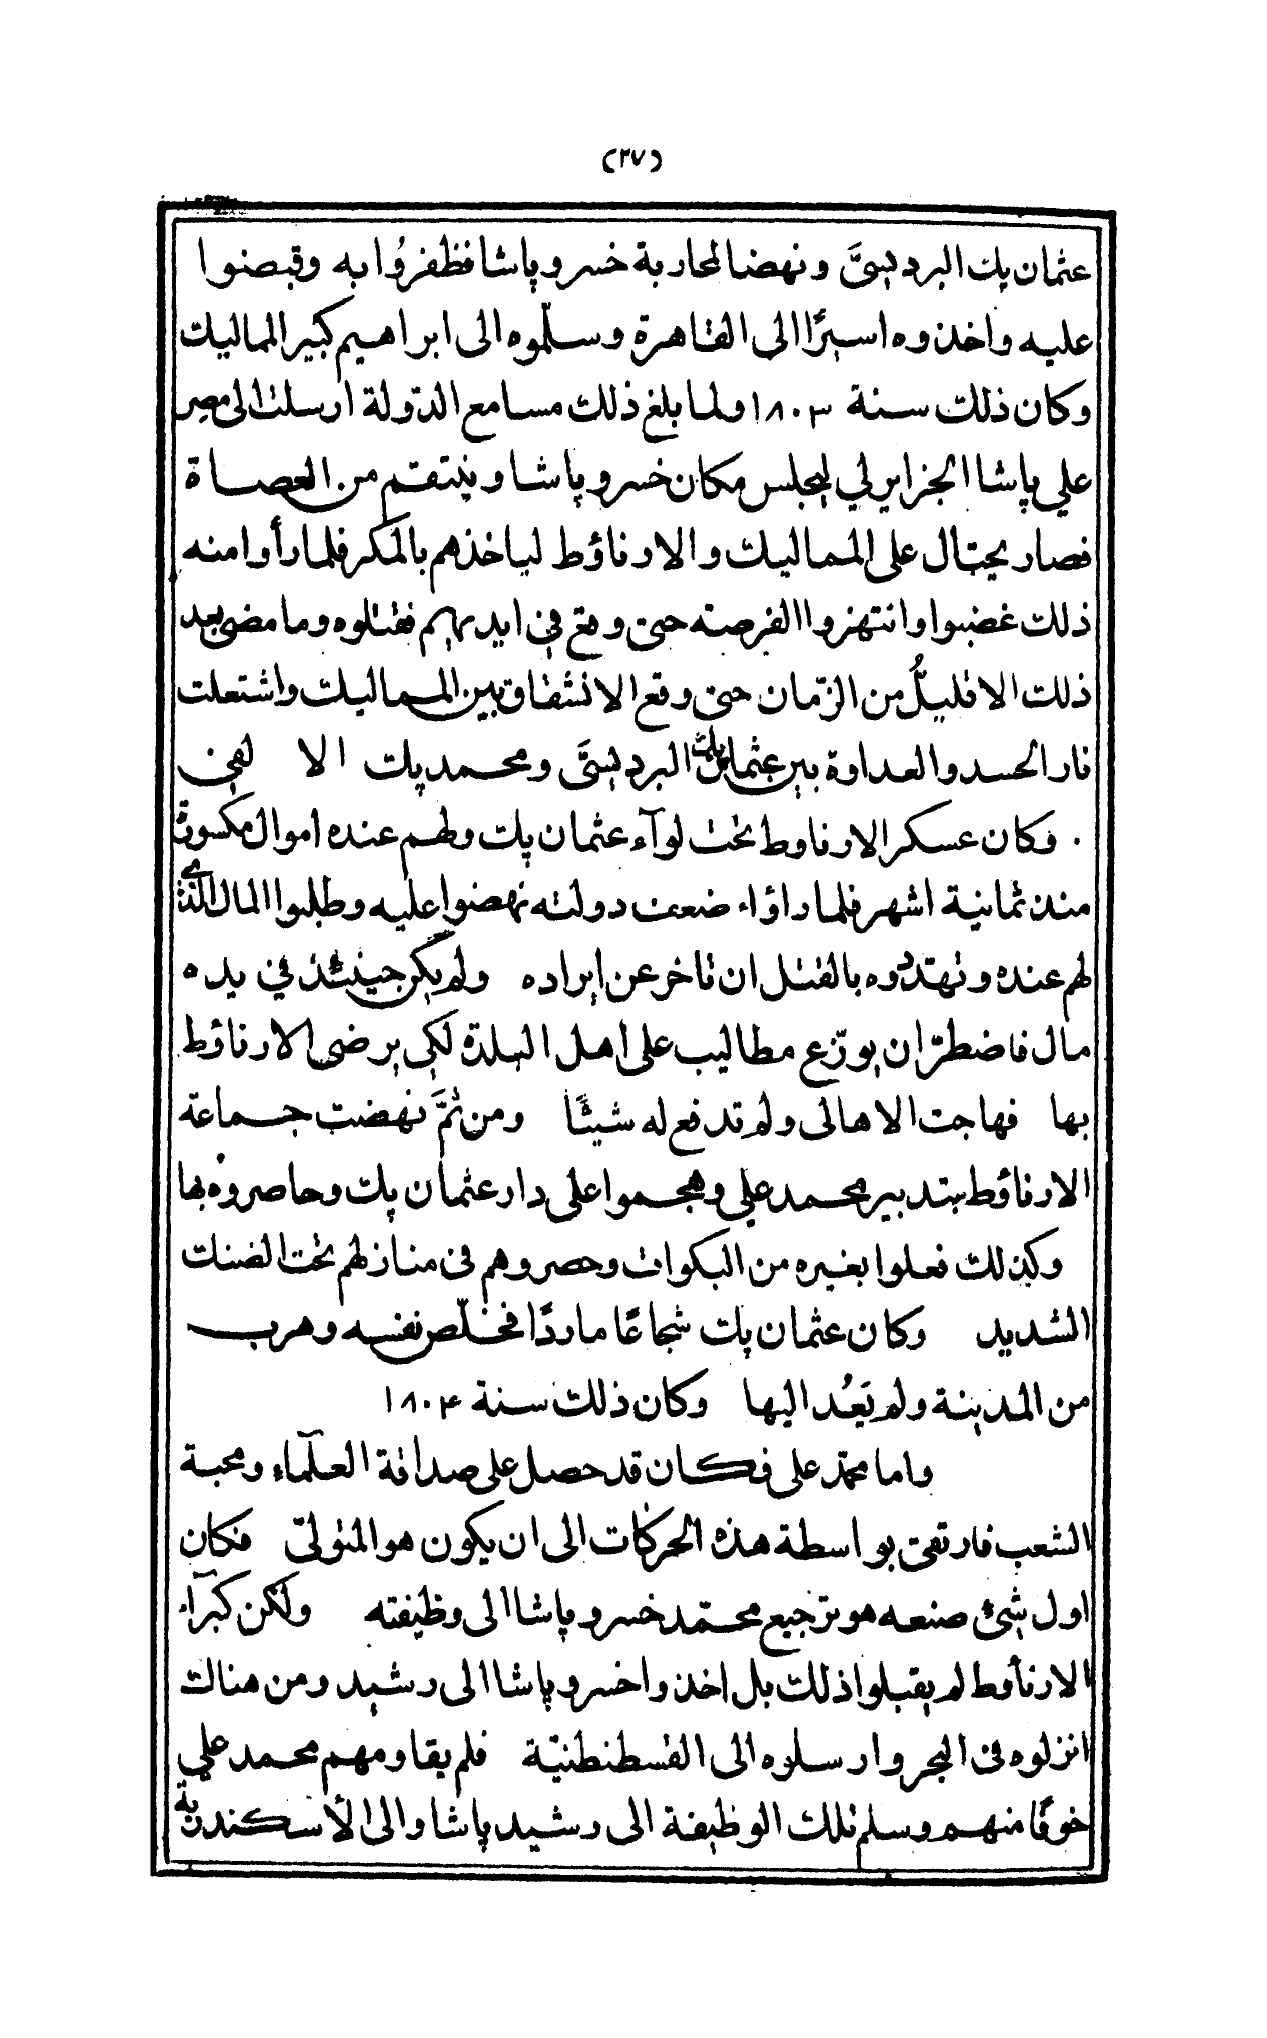 (٢٧)
عثمان بك البرديسيَّ ونهضا لمحاربة خسرو پاشا فظفرُوا به وقبضوا
عليه واخذوه اسيرًا الى القاهرة وسلّموه الى ابراهيم كبير المماليك
وكان ذلك سنة ١٨٠٣ ولما بلغ ذلك مسامع الدّولة ارسلت الى مصر
علي پاشا الجزايرلي ليجلس مكان خسرو پاشا وينتقم من العصاة
فصار يحتال على المماليك والارناؤط لياخذهم بالمكر فلما رأوا منه
ذلك غضبوا وانتهزوا الفرصة حتى وقع في ايديهم فقتلوه وما مضى بعد
ذلك الا قليلُّ من الزّمان حتى وقع الانشقاق بين المماليك واشتعلت
نار الحسد والعداوة بين عثمان بك البرديسيَّ ومحمد بك الا لفي
٠ وكان عسكر الارناوط تحت لوآء عثمان بك ولهم عنده اموال مكسورة
منذ ثمانية اشهر فلما راؤاء ضعف دولته نهضوا عليه وطلبوا المال الذي
لهم عنده وتهدّدوه بالقتل ان تاخر عن ايراده ولم يكن حينئذ في يده
مال فاضطرّ ان يوزّع مطاليب على اهل البلدة لكي يرضى الارناؤط
بها فهاجت الاهالى ولم تدفع له شيئًا ومن ثمَّ نهضت جماعة
الارناؤط بتدبير محمد علي وهجموا على دار عثمان بك وحاصروه بها
وكذلك فعلوا بغيره من البكوات وحصروهم في منازلهم تحت الضنك
الشديد وكان عثمان بك شجاعًا ماردًا فخلّص نفسه وهرب
من المدينة ولم يَعُد اليها وكان ذلك سنة ١٨٠٤
واما محمّد على فكان قد حصل على صداقة العلمآء ومحبة
الشعب فارتقى بواسطة هذه الحركات الى ان يكون هو المتولّي فكان
اول شئ صنعه هو ترجيع محمّد خسرو پاشا الى وظيفته ولكن كبرآء
الارنأوط لم يقبلوا ذلك بل اخذوا خسرو پاشا الى رشيد ومن هناك
انزلوه في البحر وارسلوه الى القسطنطنيّة فلم يقاومهم محمد علي
خوفًا منهم وسلم تلك الوظيفة الى رشيد پاشا والى الأسكندرية